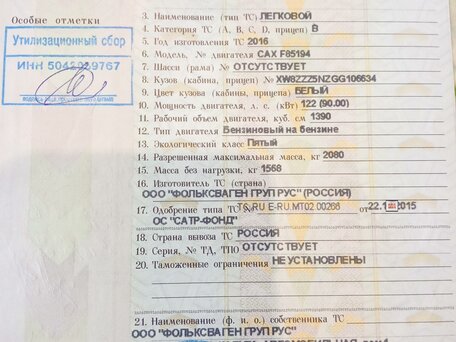 Особые отметки
Утилизационный сбор
ИНН 5042029767
3. Наименование (тип ТС) ЛЕГКОВОЙ
4. Категория ТС (А, В, С, D, прицеп) В
5. Год изготовления ТС 2016
6. Модель, № двигателя CAX F85194
7. Шасси (рама) № ОТСУТСТВУЕТ
8. Кузов (кабина, прицеп) № XW8ZZZ5NZGG106634
9. Цвет кузова (кабины, прицепа) БЕЛЫЙ
10. Мощность двигателя, л. с. (кВт) 122 (90.00)
11. Рабочий объем двигателя, куб. см 1390
12. Тип двигателя Бензиновый на бензине
13. Экологический класс Пятый
14. Разрешенная максимальная масса, кг 2080
15. Масса без нагрузки, кг 1568
16. Изготовитель ТС (страна)
ООО "ФОЛЬКСВАГЕН ГРУП РУС" (РОССИЯ)
17. Одобрение типа ТС № ТС RU E-RU.MT02.00266 от 22.1 2015
ОС "САТР-ФОНД"
18. Страна вывоза ТС РОССИЯ
19. Серия, № ТД, ТПО ОТСУТСТВУЕТ
20. Таможенные ограничения НЕ УСТАНОВЛЕНЫ
21. Наименование (ф. и. о.) собственника ТС
ООО "ФОЛЬКСВАГЕН ГРУП РУС"